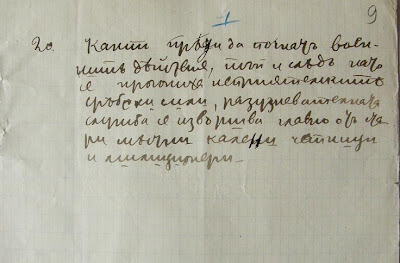 9
1
2о. Както прѣди да почнатъ воен-
нитѣ дѣйствия, тъй и слѣдъ като
се прогониха неприятелскитѣ
сръбски сили, разузнавателната
служба се извършва главно отъ ста-
ри мѣстни четници
и милиционери.